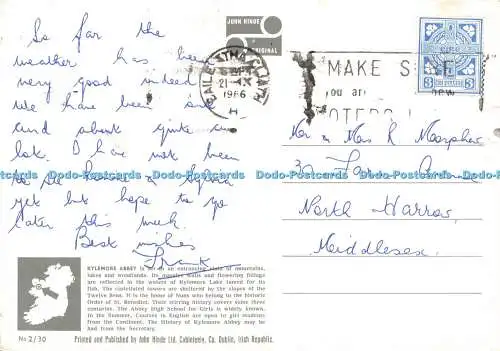 So far the
weather has been
very good indeed
We have been out
and about quite a
lot. I have not been
to see & Sylvia
yet but hope to go
later this week.
Best wishes
Frank
JOHN HINDE
ORIGINAL
BAILE ÁTHA CLIATH
21 IX
1966
H
MAKE SURE
you are
VOTERS
3
Mr & Mrs R
North Harrow
Middlesex.
KYLEMORE ABBEY is set in an entrancing vista of mountains,
lakes and woodlands. Its massive walls and flowering foliage
are reflected in the waters of Kylemore Lake famed for its
fish. The castellated towers are sheltered by the slopes of the
Twelve Bens. It is the home of Nuns who belong to the historic
Order of St. Benedict. Their stirring history covers some three
centuries. The Abbey High School for Girls is widely known.
In the Summer, Courses in English are open to girl students
from the Continent. The History of Kylemore Abbey may be
had from the Secretary.
No 2/30
Printed and Published by John Hinde Ltd. Cabinteely, Co. Dublin, Irish Republic.
Dodo-Postcards Dodo-Postcards Dodo-Postcards Dodo-Postcards